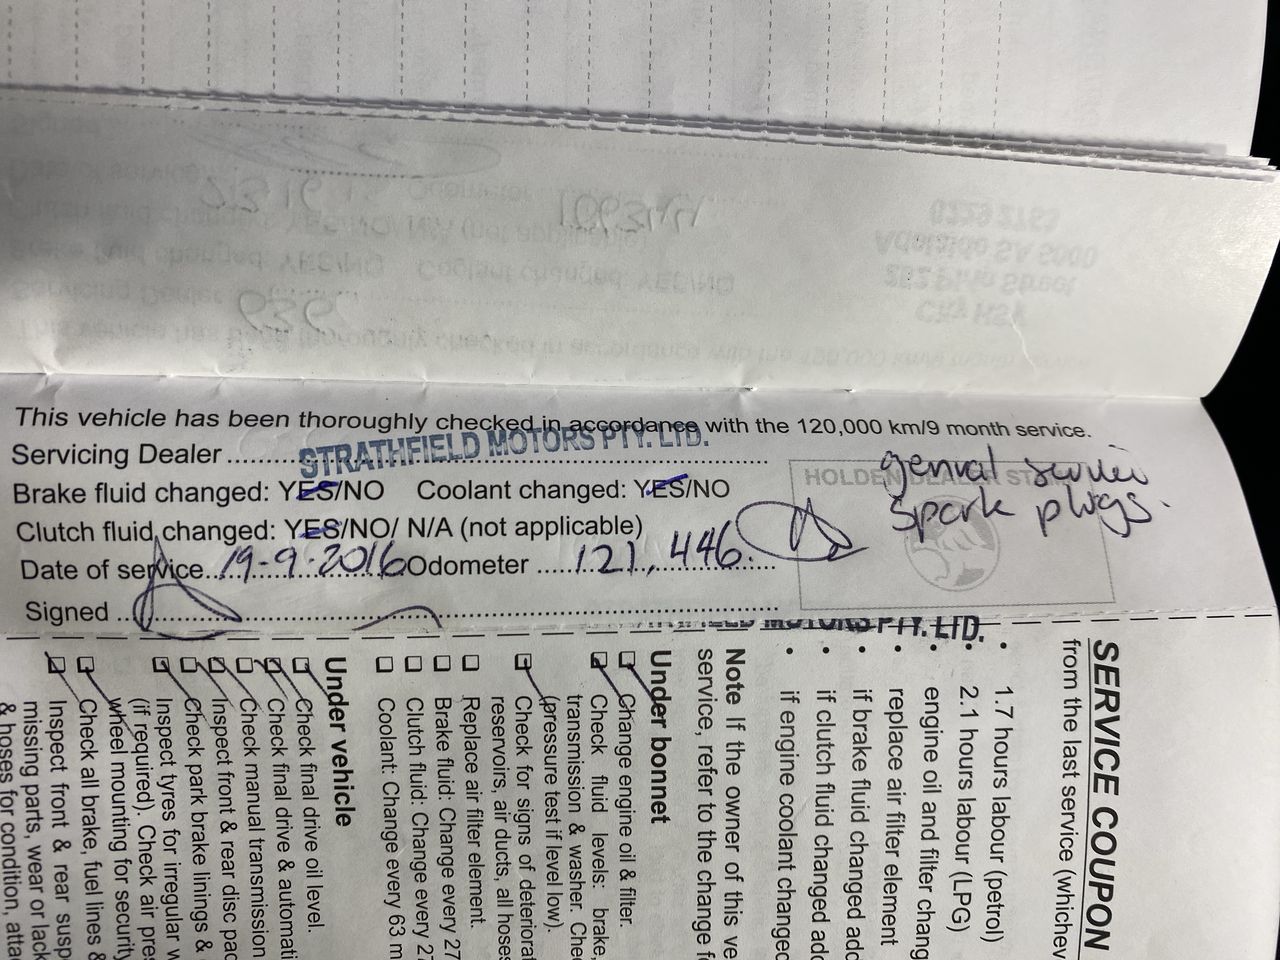 This vehicle has been thoroughly checked in accordance with the 120,000 km/9 month service.
Servicing Dealer ........ STRATHFIELD MOTORS PTY. LTD.
Brake fluid changed: YES/NO Coolant changed: YES/NO
Clutch fluid changed: YES/NO/ N/A (not applicable)
Date of service..19-9-2016 Odometer .....121,446.
Signed
HOLDEN DEALER STAMP
spark plugs.
MOTORS PTY. LTD.
SERVICE COUPON
from the last service (whichev
• 1.7 hours labour (petrol)
• 2.1 hours labour (LPG)
• engine oil and filter chang
• replace air filter element
• if brake fluid changed add
• if clutch fluid changed add
• if engine coolant changed
Note If the owner of this ve
service, refer to the change f
Under bonnet
Change engine oil & filter.
Check fluid levels: brake,
transmission & washer. Chec
(pressure test if level low).
Check for signs of deteriorat
reservoirs, air ducts, all hoses
Replace air filter element.
Brake fluid: Change every 27
Clutch fluid: Change every 27
Coolant: Change every 63 m
Under vehicle
Check final drive oil level.
Check final drive & automati
Check manual transmission
Inspect front & rear disc pad
Check park brake linings &
Inspect tyres for irregular w
(if required). Check air pres
wheel mounting for security
Check all brake, fuel lines &
Inspect front & rear susp
missing parts, wear or lack
& hoses for condition, attac